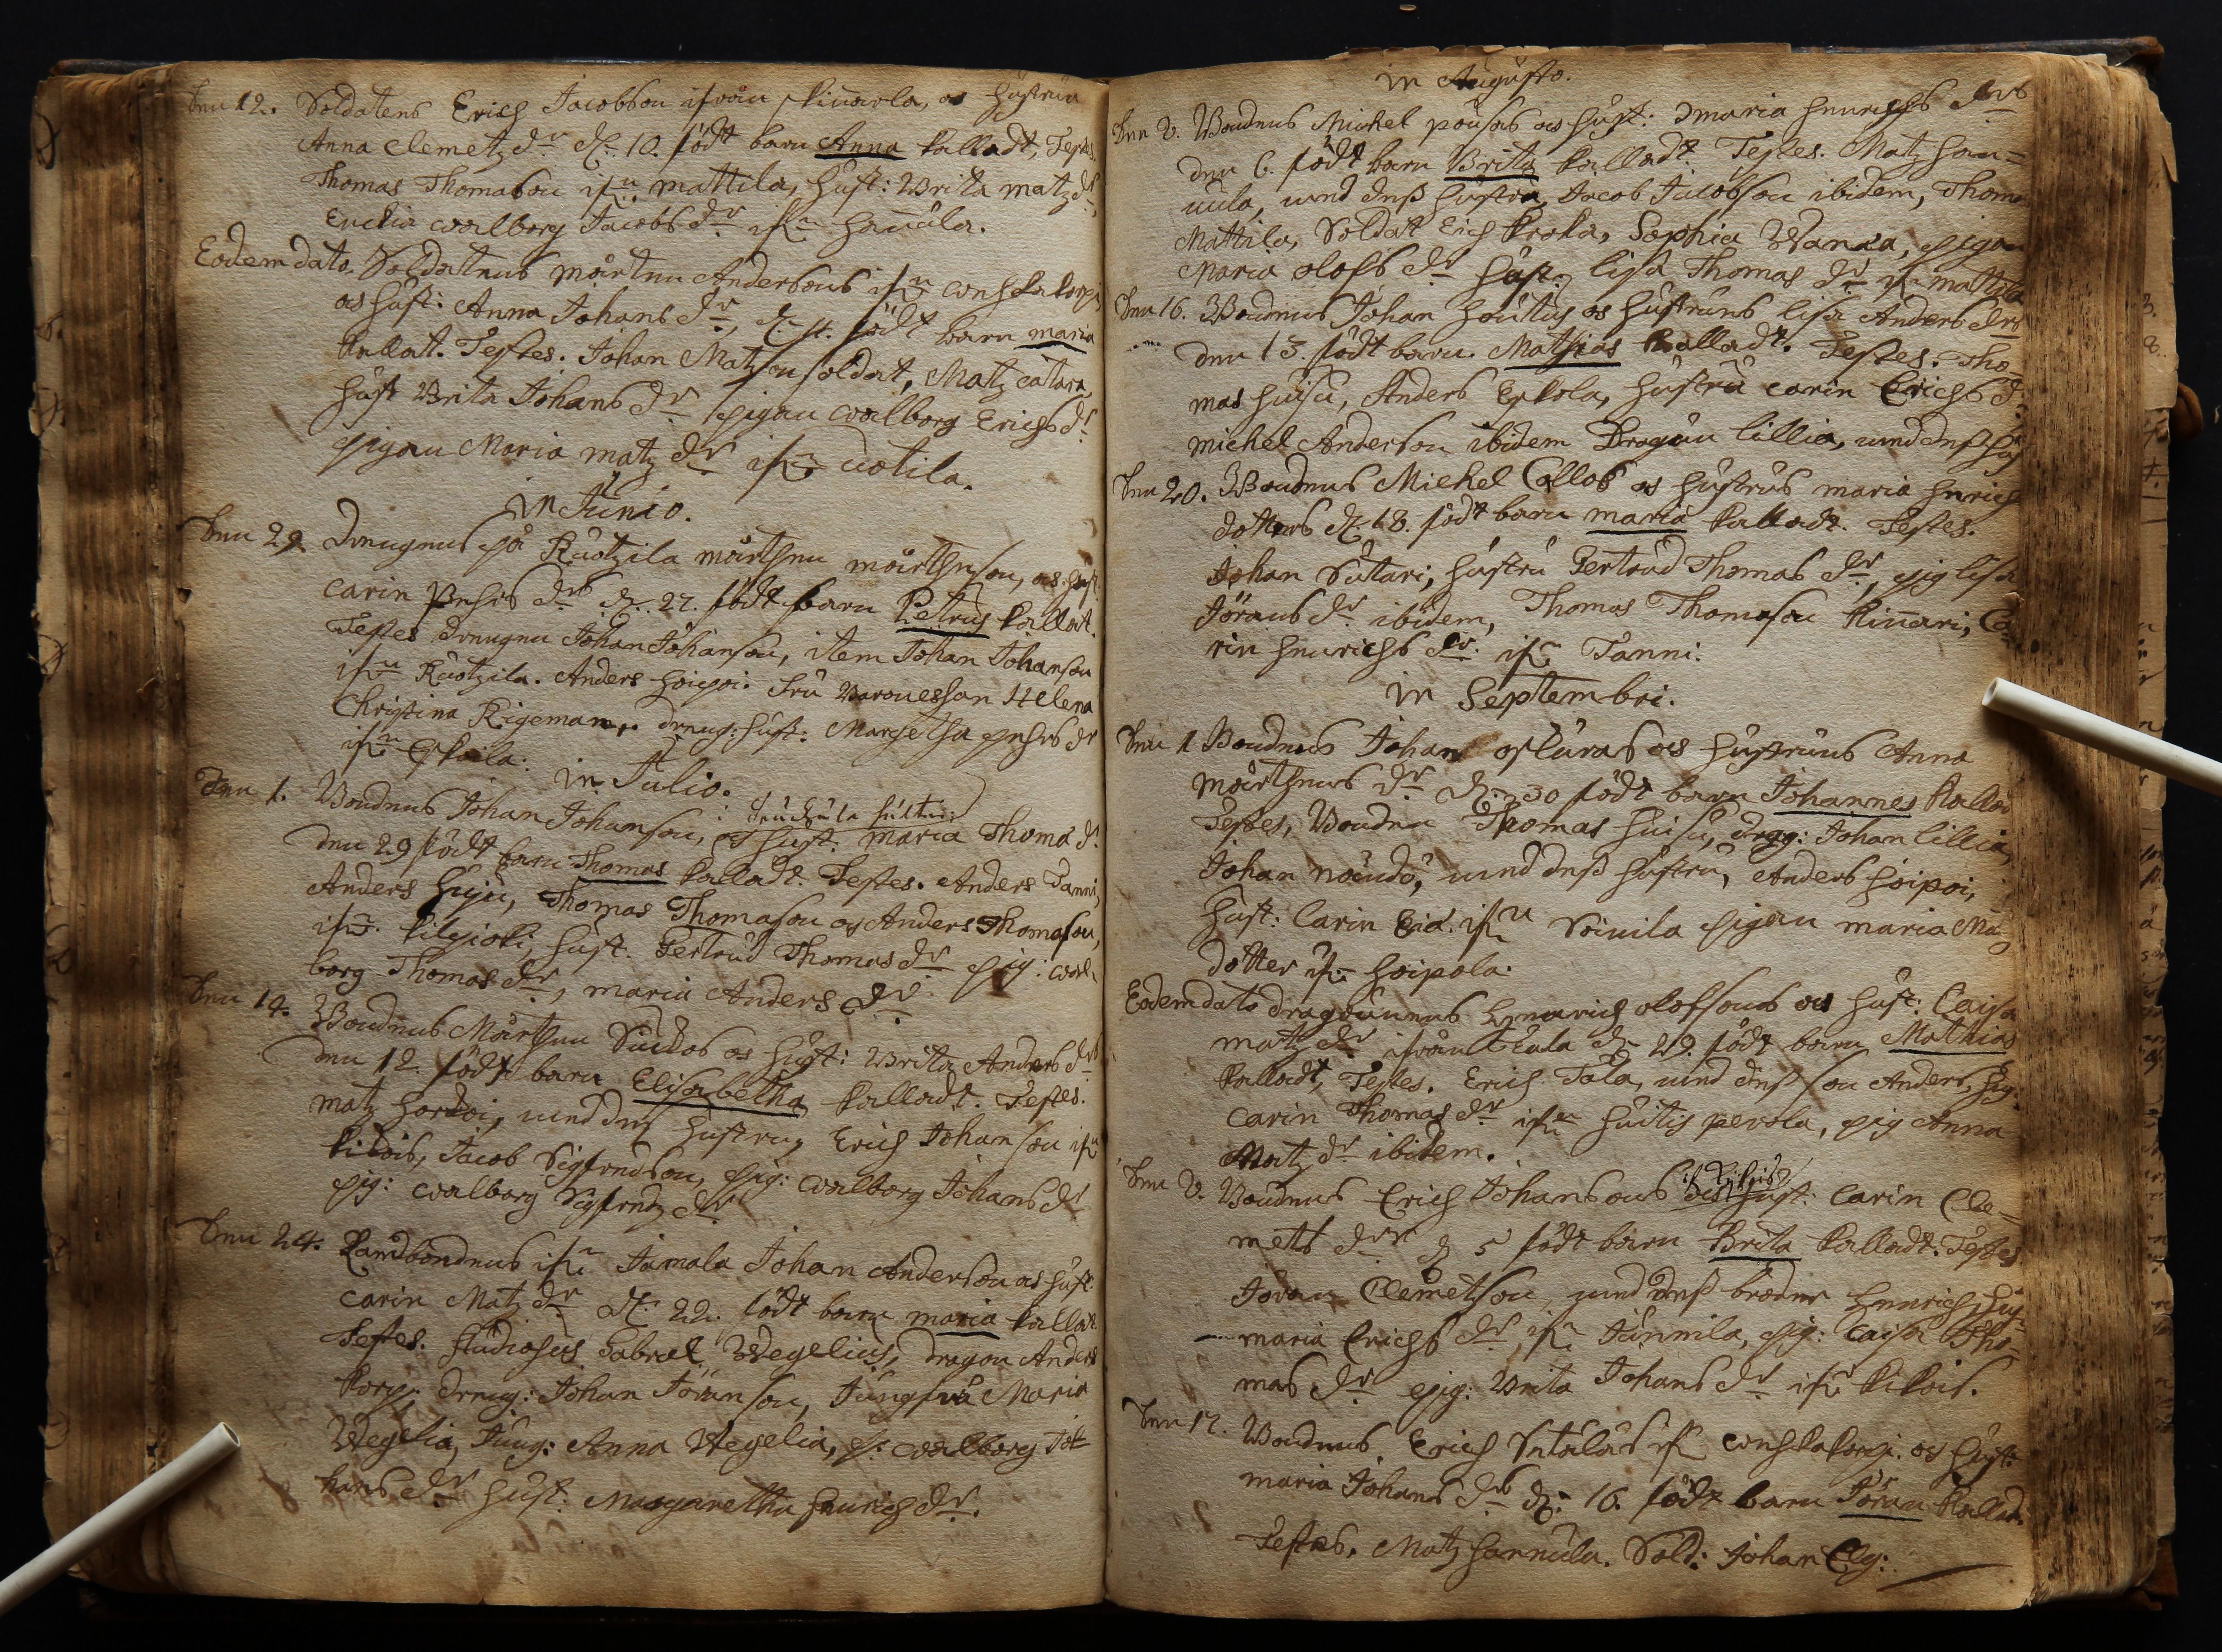 Den 12. Soldatens Erich Jacobson ifrån Kinarla, os hustrun
Anna Clemetz dr d. 10. födt barn Anna kalladt, Testes.
Thomas Thomason ifrn mattila, hust: Brita matz dr,
Enckia walborg Jacobs dr ifrn hanula.
Eodem dato. Soldatens mårten Andersons ifrn
os hust: Anna Johans dr, d. 11. födt barn maria
kallat. Testes. Johan Matzson soldat, Matz Cattara
hust Brita Johans dr pigan walborg Erichs dr
pigan Maria matz dr ifrn uotila.
in Junio.
Den 29. Drengens på Ruotzila mårthen mårthenson, os hust
Carin Pehrs dr d. 27. födt barn Petrus kallat.
Testes drengen Johan Johanson, item Johan Johanson
ifrn Ruotzila. Anders hoipoi. Fru Baronessan Helena
Christina Rigeman, dreng: hust: Margetha pehrs dr
ifrn Eskoila:
in Julio.
Den 1. Bondens Johan Johanson, os hust: maria Thoma dr
den 29 födt barn Thomas kalladt. Testes. Anders Tanni,
Anders huju, Thomas Thomason os Anders Thomason,
ifrn Kilpioki, hust. Gertrud Thomas dr pig: wal-
borg Thomas dr, maria Anders dr.
Den 14. Bondens Mårthen os hust: Brita Anders drs
den 12. födt barn Elisabetha kalladt. Testes.
matz horkoi, und dess hustru, Erich Johanson ifrn
Kikois, Jacob Sigfredson, pig: walborg Johans dr
pig: walborg Sigfredz dr
Den 24. Landbondens ifrn Jamala Johan Anderson os hust
Carin Matz dr d. 22. födt barn maria kallat
Testes. Studiosus Gabriel Wegelius, dragon Anders
korp. dreng: Johan Jöranson, Jungfru Maria
Wegelia, Jung: Anna Wegelia, p: walborg Jo-
hans dr hust: Margaretha Henrich dr.
in Augusto.
Den 8. Bondens Michel pousas os hust: maria henrichs drs
den 6. födt barn Brita kalladt. Testes. Matz han=
nula, und dess hustru, Jacob Jacobson ibidem, Thom
Mattila, Soldat Erich kroka, Sophia Wanaa, pigan
Maria olofs dr hust: lisa Thomas dr ifrn mattila
Den 16. Bondens Johan houtus os hustruns lisa Anders drs
den 13. födt barn. Mathias kalladt. Testes. Tho=
mas huisu, Anders Eskola, hustru Carin Erichs dr
michel Anderson ibidem Dragoun lillia, und dess hust
Den 20. Bondens Michel Collos os hustrus maria henrich
dotters d. 18. födt barn maria kalladt. Testes.
Johan Sutari, hustru Gertrud Thomas dr, pig lisa
Jörans dr ibidem, Thomas Thomason Kinari, Ca-
rin henrichs dr. ifrn Tanni.
in Septembri.
Den 1 Bondens Johan osturas os hustruns Anna
mårthens dr d. 30 födt barn Johannes kallad
Testes, Bonden Thomas huisu, drag: Johan lillia,
Johan nåudö, und dess hustru, Anders hoipoi,
hust: Carin Eid. ifrn Soinila pigan maria Ma
dotter ifrn hoipola.
Eodem dato dragounens Henrich olofsons os hust: Caisa
matz dr ifrån d. 29. födt barn Mathias
kalladt, Testes. Erich Tala, und dess son Anders, hu.
Carin Thomas dr ifrn huitis perola, pig Anna
Matz dr ibidem.
Den 8. Bondens Erich Johansons ifrn Kikois os hust: Carin Cle=
mets dr d 5 födt barn Brita kalladt. Testes
Joran Clemetson, und dess broder henrich, hu
maria Erichs dr ifrn Junnila, pig: Caisa Tho=
mas dr pig: Brita Johans dr ifrn kikois.
Den 17. Bondens Erich ifrn os hust:
maria Johans dr d. 16. födt barn Jöran kallad.
Testes. Matz hannula. Sold: Johan Elg: